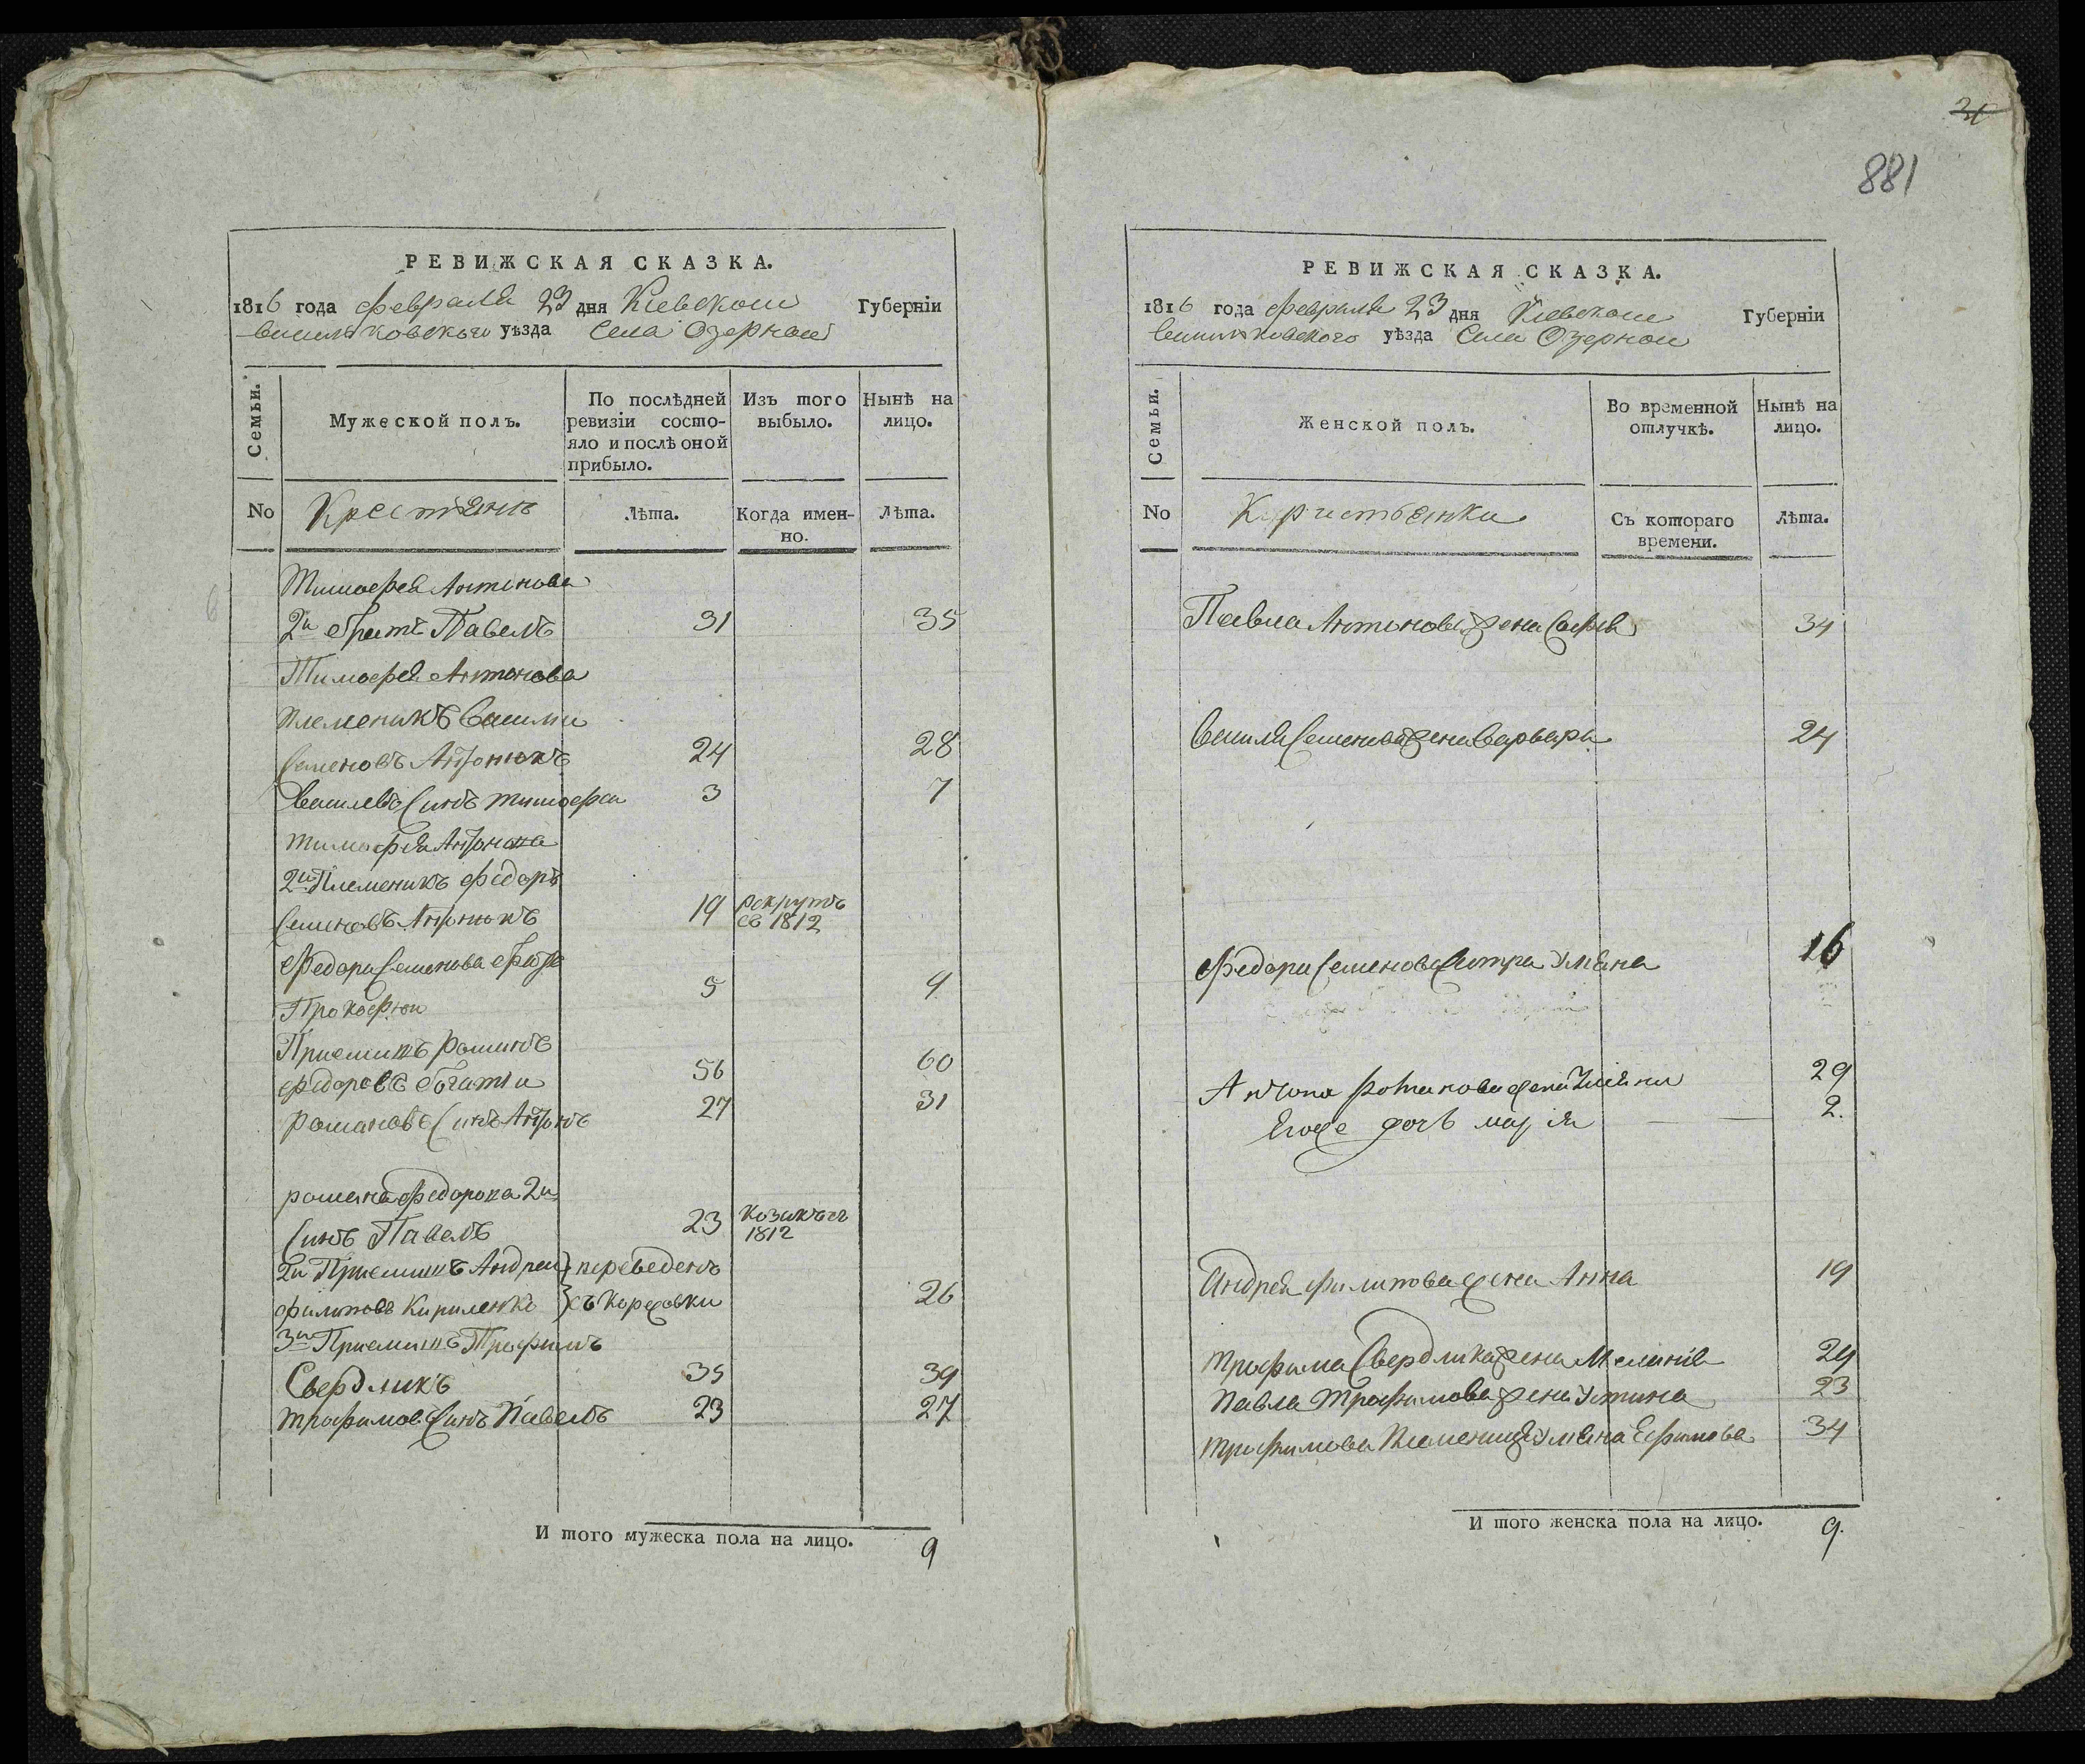 РЕВИЖСКАЯ СКАЗКА.
1816 года февраля 23 дня Киевской Губерніи
васильковского уѣзда Села Озерной
Семьи.
Мужеской полъ.
По послѣдней ревизіи состояло и послѣ оной прибыло.
Изъ того выбыло.
Нынѣ на лицо.
No
Лѣта.
Когда именно.
Лѣта.
Тимофея Антонова
2й братъ Павелъ 31 35
Тимофея Антонова
племеникъ Васили
Семеновъ Антонюкъ 24 28
василевъ Синъ тимофеи 3 7
тимофея Антонюка
2й Племеникъ Федоръ
Семеновъ Антонюкъ 19 рекрутъ
въ 1812
Федора Семенова братъ
Прокофеи 5 9
Приемишъ романъ
федоровъ 56 60
романовъ Синъ Антонъ 27 31
романа федорова 2й
Синъ Павелъ 23 козакъ
1812
2й Приемишъ Андреи переведенъ
филиповъ Кириленко съ 26
3й Приемишъ Трофимъ
Свердликъ 35 39
трофимовъ Синъ Павелъ 23 27
И того мужеска пола на лицо. 9
881
РЕВИЖСКАЯ СКАЗКА.
1816 года февраля 23 дня Киевской Губерніи
васильковского уѣзда Села Озерной
Семьи.
Женской полъ.
Во временной отлучкѣ.
Нынѣ на лицо.
No
Съ котораго времени.
Лѣта.
Павла Антонова жена Софія 34
Василя Семенова жена варвара 24
Федора Семенова Сестра Уляна 16
Антона Романова жена Уляна 29
Егоже дочь марія 2.
Андрея филипова жена Анна 19
трофима Свердлика жена Меланія 29
Павла Трофимова жена Устина 23
трофимова Племеница Уляна Ефимова 34
И того женска пола на лицо. 9.